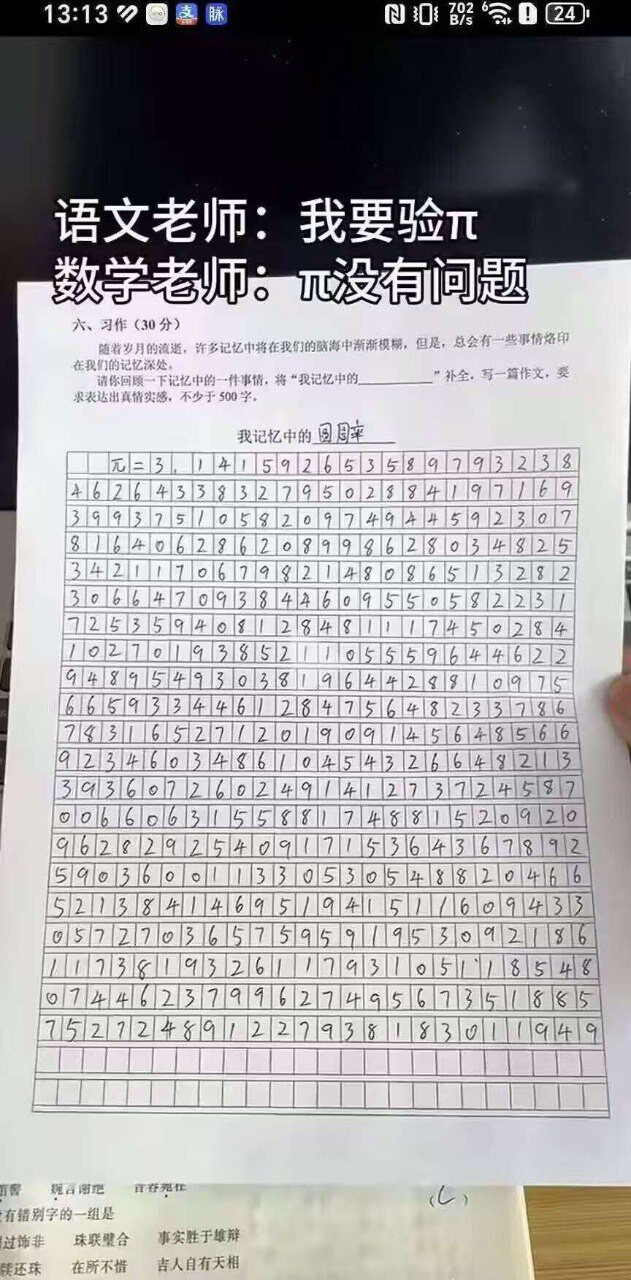 13:13
支
脉
702 B/s
6
24
语文老师：我要验π
数学老师：π没有问题
六、习作（30 分）
随着岁月的流逝，许多记忆中将在我们的脑海中渐渐模糊，但是，总会有一些事情烙印
在我们的记忆深处。
请你回顾一下记忆中的一件事情，将“我记忆中的____________”补全，写一篇作文，要
求表达出真情实感，不少于 500 字。
我记忆中的 圆周率
π=3.141592653589793238
462643383279502884197169
399375105820974944592307
816406286208998628034825
342117067982148086513282
306647093844609550582231
725359408128481117450284
102701938521105559644622
948954930381964428810975
665933446128475648233786
783165271201909145648566
923460348610454326648213
393607260249141273724587
006606315588174881520920
962829254091715364367892
590360011330530548820466
521384146951941511609433
057270365759591953092186
117381932611793105118548
074462379962749567351885
752724891227938183011949
有错别字的一组是
过饰非 珠联璧合 事实胜于雄辩
还珠 在所不惜 吉人自有天相